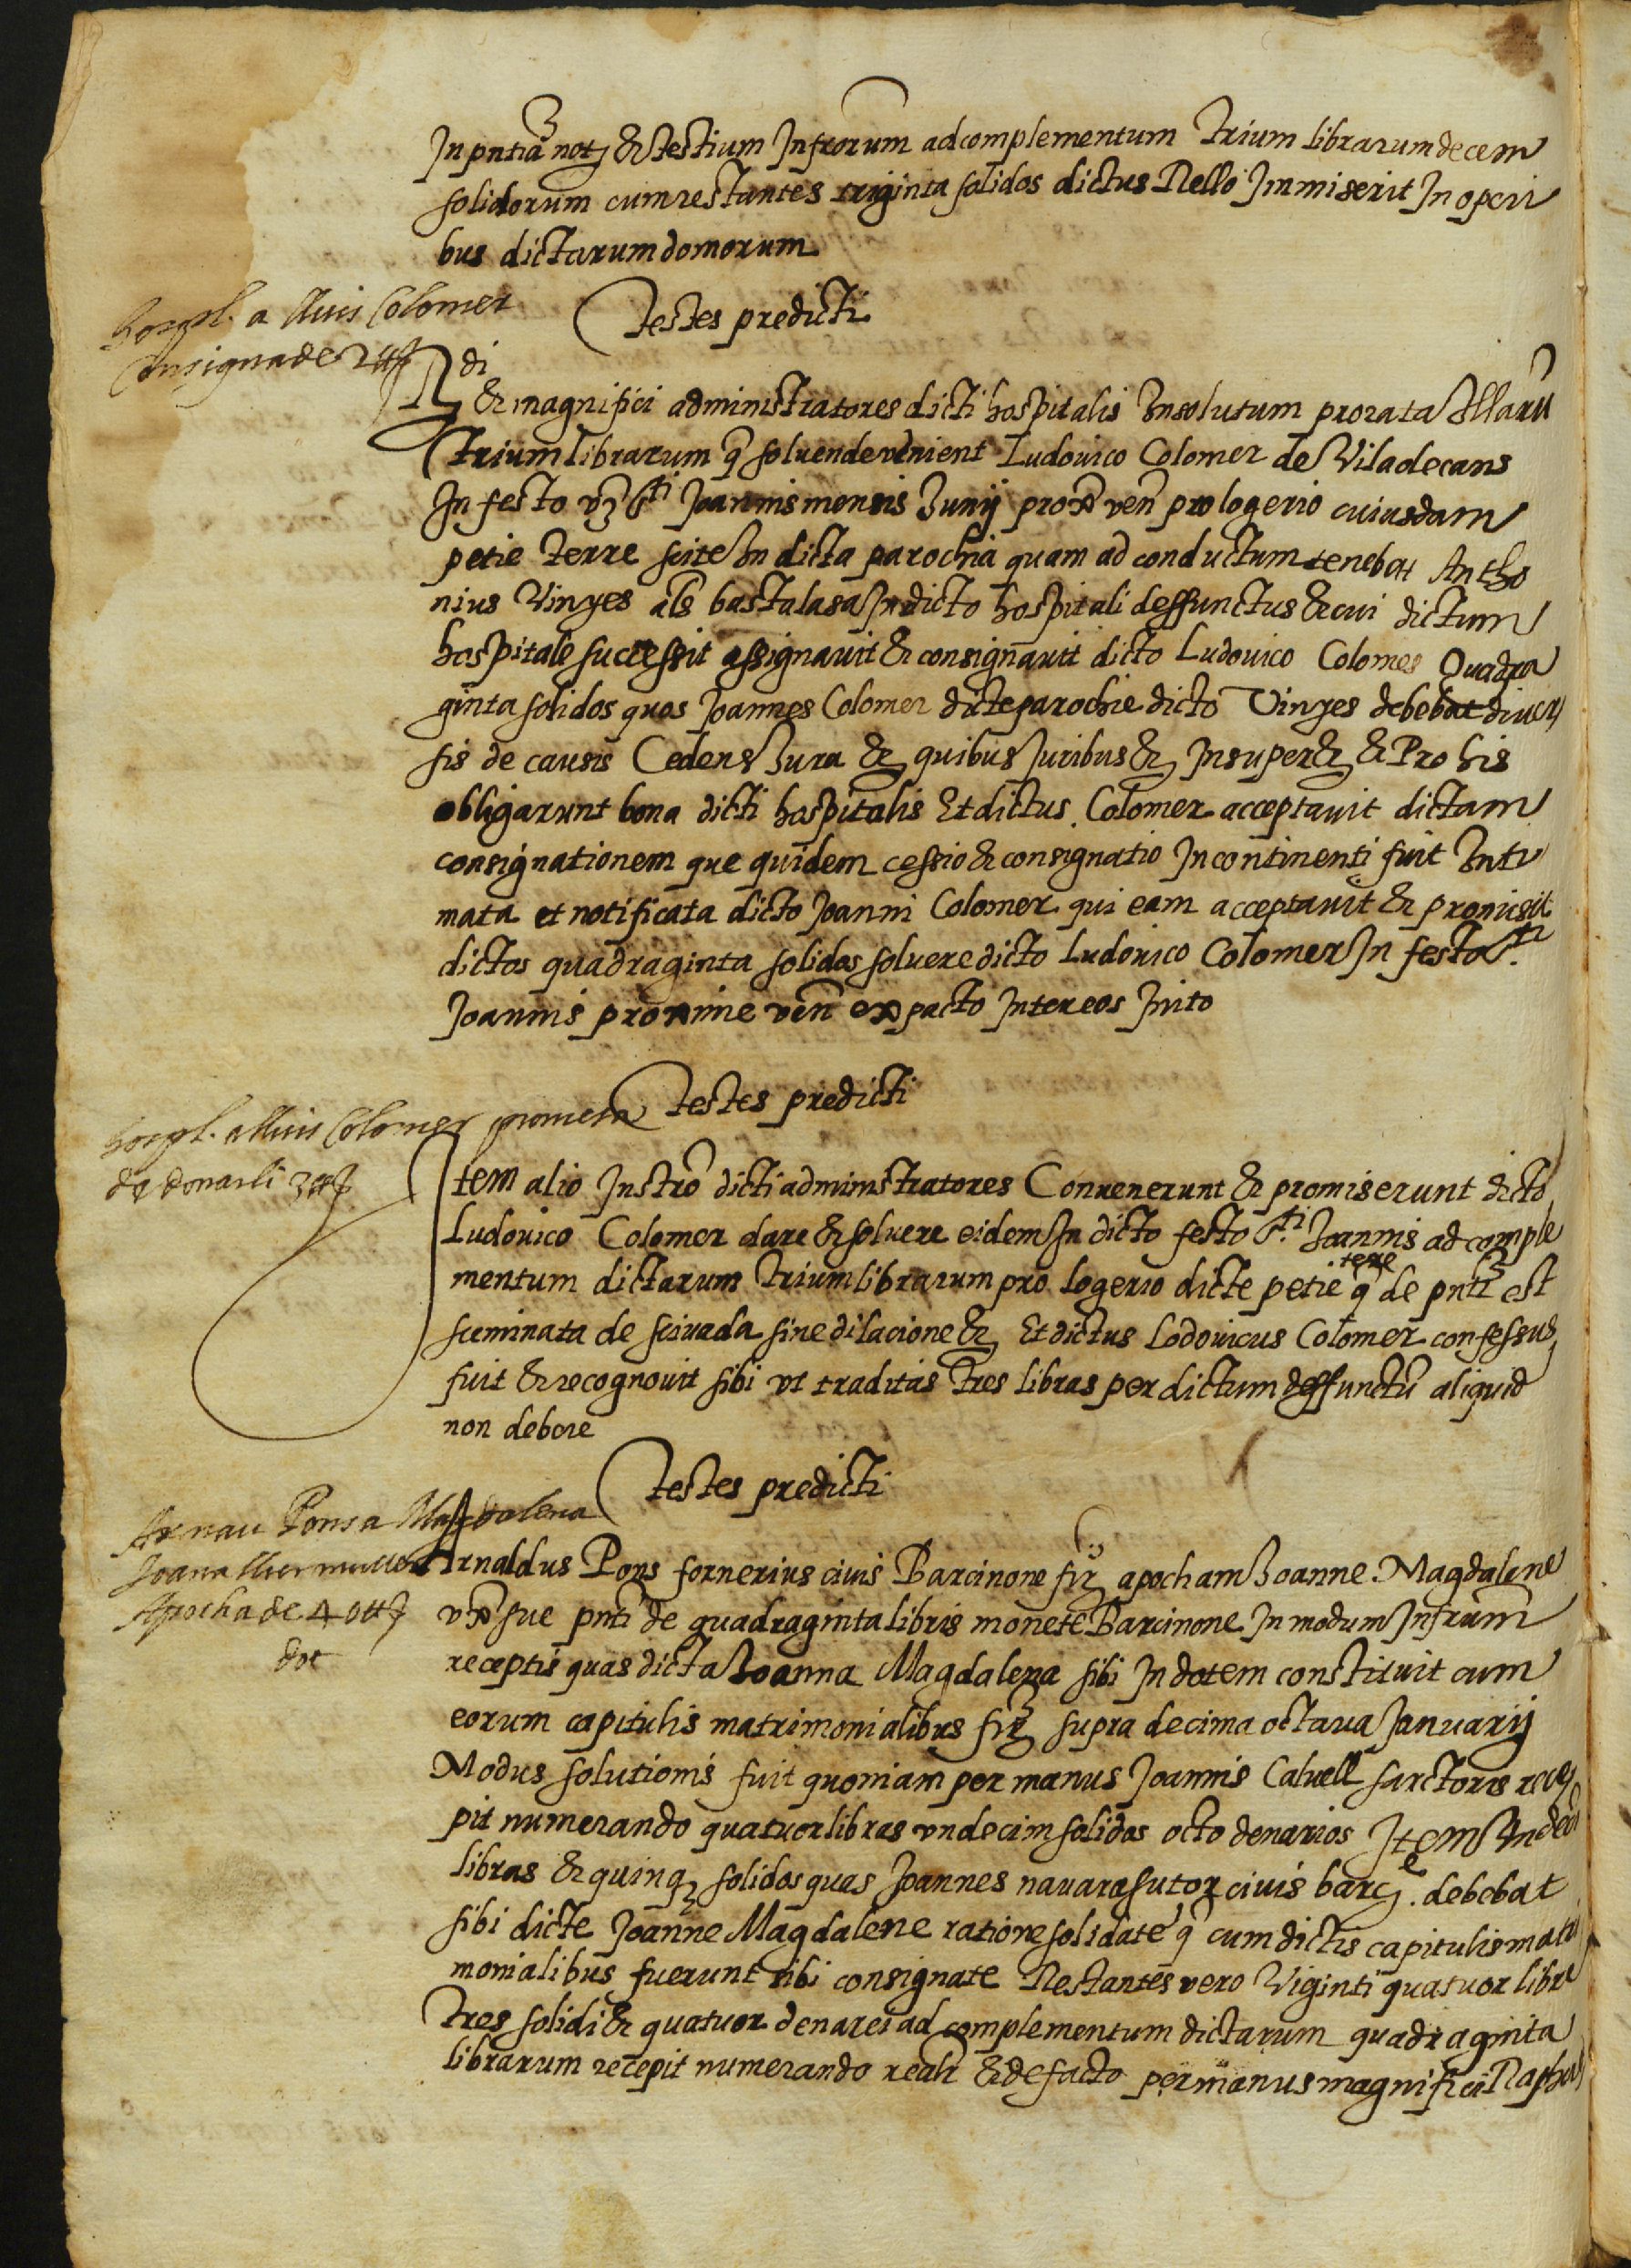 In pntia not & testium Infrorum ad complementum trium librarum decem
solidorum cum restantes triginta solidos dictus Rello Immiserit In operi
bus dictarum domorum
Testes predicti
hospl. a lluis Colomer
Consigna de 2 ₶
Rdi & magnifici administratores dicti hospitalis Insolutum prorata Illaru
trium librarum q soluende venient Ludouico Colomer de Viladecans
In festo vz Sti Joannis mensis Junij prox ven pro logerio cuiusdam
petie terre scite In dicta parochia quam ad conductum tenebat Antho
nius Vinyes als bastalasa In dicto hospitali deffunctus & cui dictum
hospitale successit assignauit & consignauit dicto Ludouico Colomer Quadra
ginta solidos quos Joannes Colomer dicte parochie dicto Vinyes debebat diuer
sis de causis Cedens Jura & quibus Juribus & Insuper & & Pro his
obligarunt bona dicti hospitalis Et dictus Colomer acceptauit dictam
consignationem que quidem cessio & consignatio In continenti fuit Inti
mata et notificata dicto Joanni Colomer qui eam acceptauit & promisit
dictos quadraginta solidos soluere dicto Ludouico Colomer In festo Sti
Joannis proxime ven ex pacto Inter eos Inito
Testes predicti
hospl. a lluis Colomer promesa
de donarli 3 ₶
Item alio Instro dicti administratores Conuenerunt & promiserunt dicto
Ludouico Colomer dare & soluere eidem In dicto festo Sti Joannis ad comple
mentum dictarum trium librarum pro logerio dicte petie terre q de pnti est
seminata de sciuada sine dilacione & Et dictus Lodouicus Colomer confessus
fuit & recognouit sibi vt traditas tres libras per dictum deffunctu aliquid
non debere
Testes predicti
Arnau Pons a Magdalena
Joana muller
Apocha de 40 ₶
dot
Arnaldus Pons fornerius ciuis Barcinone fir apocham Joanne Magdalene
vx sue pnti de quadraginta libris monete Barcinone In modum Infrum
receptis quas dicta Joanna Magdalena sibi In dotem constituit cum
eorum capitulis matrimonialibus fir supra decima octaua Januarij
Modus solutionis fuit quoniam per manus Joannis Caluell sartoris rece
pit numerando quatuor libras vndecim solidos octo denarios Item Vndeci
libras & quinq solidos quas Joannes nauara sutor ciuis barc. debebat
sibi dicte Joanne Magdalene ratione solidate q cum dictis capitulis matri
monialibus fuerunt sibi consignate Restantes vero Viginti quatuor libre
tres solidi & quatuor denarei ad complementum dictarum quadraginta
librarum recepit numerando realr & de facto per manus magnifici Raphael